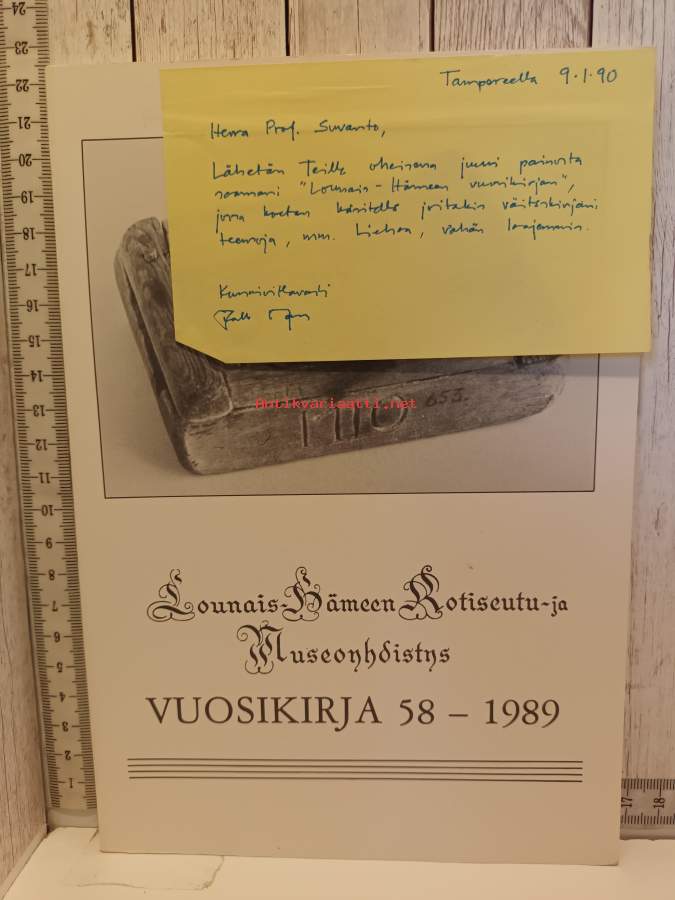 Tampereella 9.1.90
Herra Prof. Suvanto,
Lähetän Teille oheisena juuri painosta
saamani "Lounais-Hämeen vuosikirjan",
jossa koetan käsitellä joitakin väitöskirjani
teemoja, mm. Liehoa, vähän laajemmin.
Kunnioittavasti
653.
Antikvariaatti.net
Lounais-Hämeen Kotiseutu-ja
Museoyhdistys
VUOSIKIRJA 58 – 1989
24
23
22
21
20
19
18
17
16
15
14
13
12
11
10
9
8
7
6
5
4
3
2
1
17 18